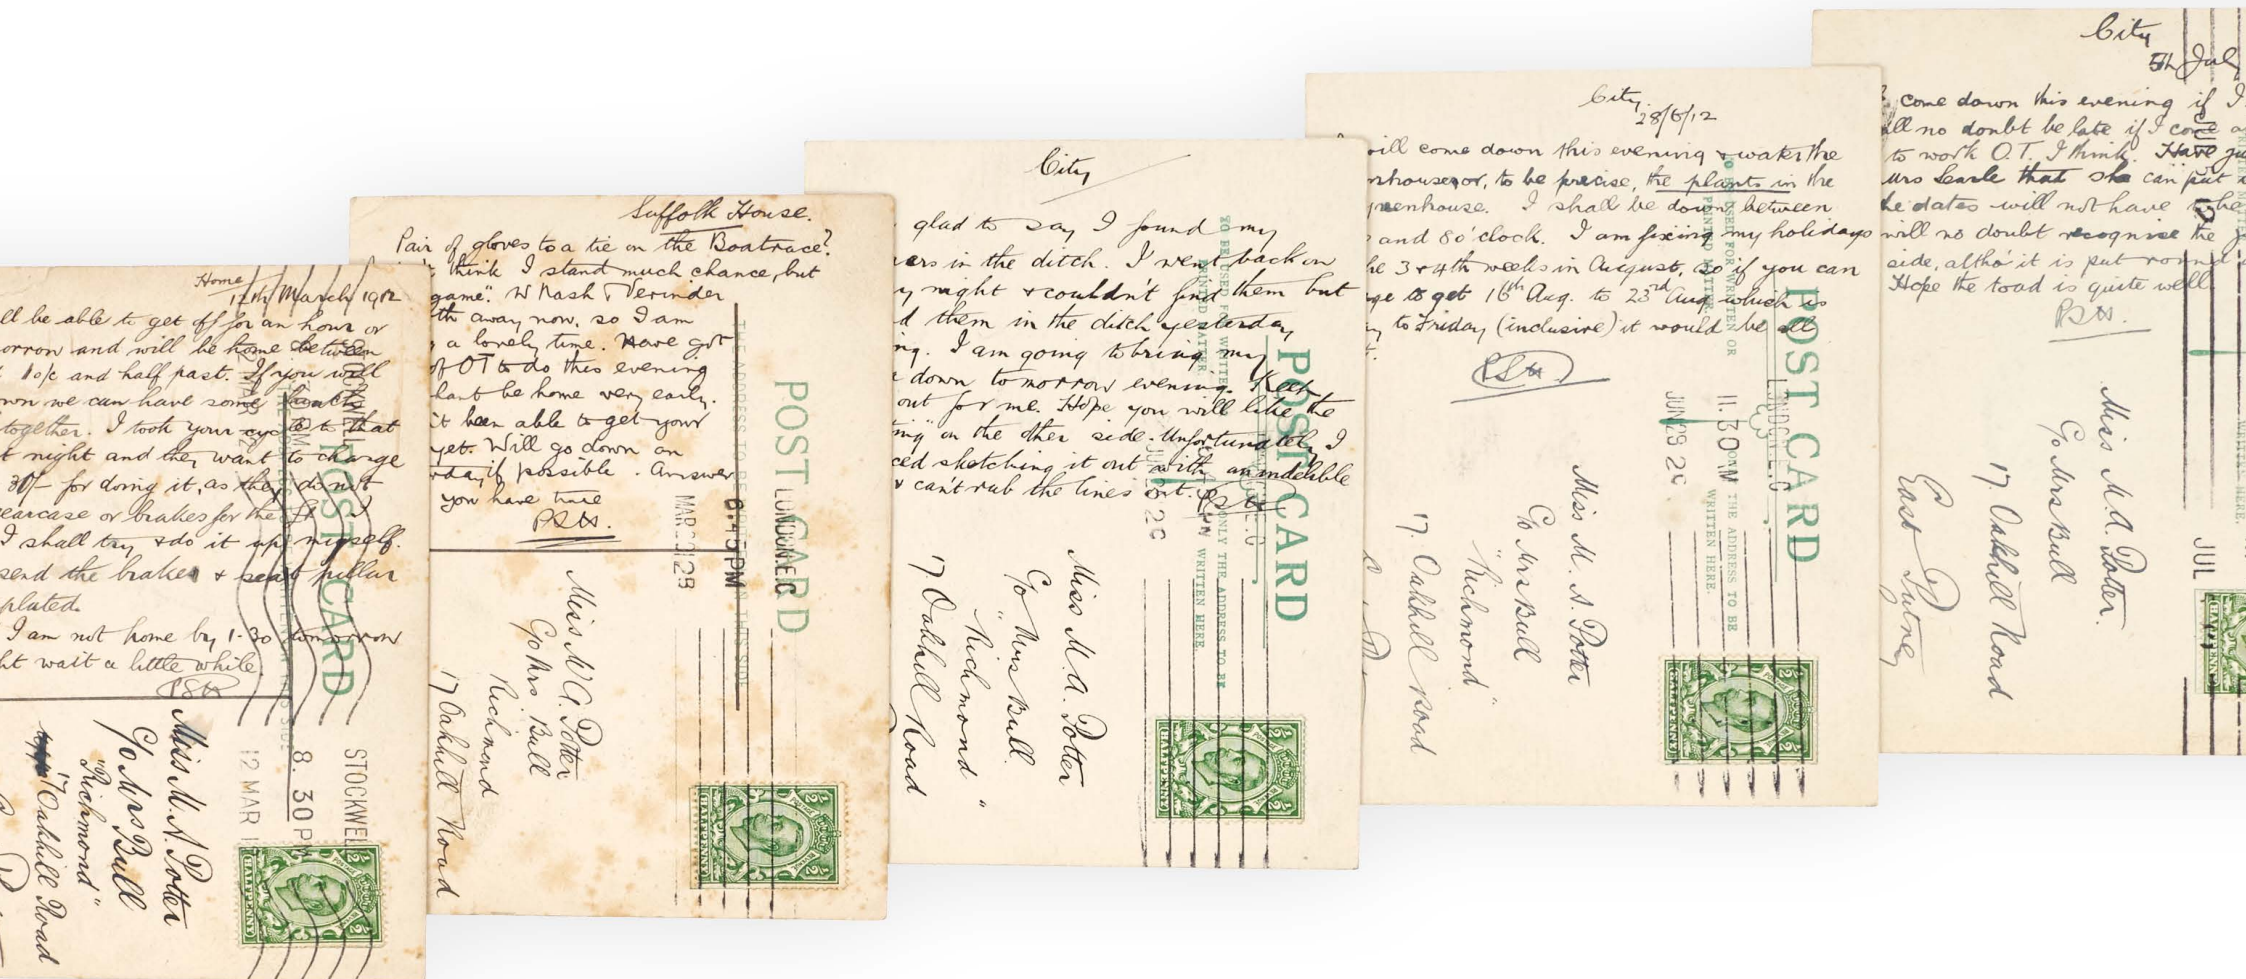 Home
12th March 1912
ll be able to get off for an hour or
orrow and will be home between
1 o/c and half past. If you will
own we can have some
together. I took your cycle to that
t night and they want to charge
30/- for doing it, as they do not
gearcase or brakes for the I
I shall try & do it up myself.
send the brakes & seat pillar
plated.
I am not home by 1-30 tomorrow
ht wait a little while.
PSH
POST CARD
STOCKWELL
8. 30 PM
12 MAR 1
Miss M. A. Potter
C/o Mrs Bull
"Richmond"
17 Oakhill Road
HALFPENNY
Suffolk House.
Pair of gloves to a tie on the Boatrace?
think I stand much chance, but
game". W Nash & Verinder
th away now, so I am
a lovely time. Have got
of OT to do this evening
hant be home very early.
it been able to get your
yet. Will go down on
rday if possible. Answer
you have time
PSH.
POST CARD
LONDON E.C
6.45 PM
MAR 31 29
Miss M A. Potter
C/o Mrs Bull
Richmond
17 Oakhill Road
HALFPENNY
City
glad to say I found my
ers in the ditch. I went back on
y night & couldn't find them but
d them in the ditch yesterday
ng. I am going to bring my
down tomorrow evening. Keep
out for me. Hope you will like the
ing" on the other side. Unfortunately I
ced sketching it out with an indelible
& can't rub the lines out. PSH
POST CARD
TO BE USED FOR WRITTEN OR
PRINTED MATTER.
ONLY THE ADDRESS TO BE
WRITTEN HERE.
Miss M. A. Potter
C/o Mrs Bull
"Richmond"
17 Oakhill Road
HALFPENNY
City
28/6/12
will come down this evening & water the
nhouse, or, to be precise, the plants in the
greenhouse. I shall be down between
and 8 o'clock. I am fixing my holidays
he 3 & 4th weeks in August, so if you can
ge to get 16th Aug. to 23rd Aug which is
y to Friday (inclusive) it would be all
t.
PSH
POST CARD
TO BE USED FOR WRITTEN OR
PRINTED MATTER.
THE ADDRESS TO BE
WRITTEN HERE.
11.30 AM
JUN 29 2
Miss M. A. Potter
C/o Mrs Bull
"Richmond"
17. Oakhill Road
HALFPENNY
City
5th July
come down this evening if I
all no doubt be late if I come a
to work O.T. I think. Have ju
Mrs Searle that she can put
he dates will not have to be
will no doubt recognise the
side, altho' it is put round
Hope the toad is quite well.
PSH.
JUL
Miss M. A. Potter.
C/o Mrs Bull
17 Oakhill Road
East Putney